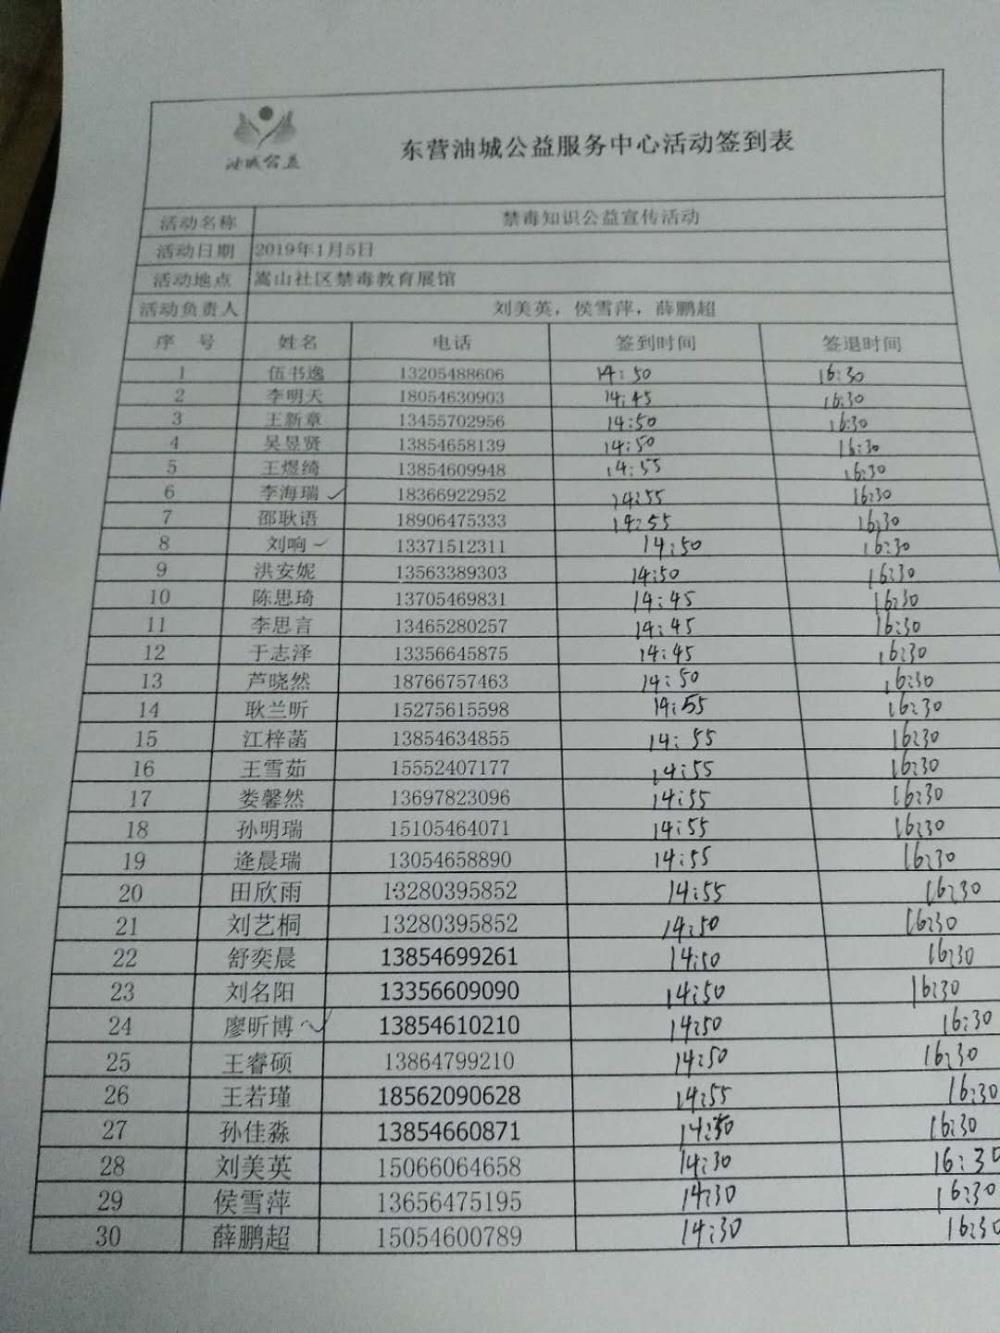 油城公益
东营油城公益服务中心活动签到表
活动名称 禁毒知识公益宣传活动
活动日期 2019年1月5日
活动地点 嵩山社区禁毒教育展馆
活动负责人 刘美英，侯雪萍，薛鹏超
序 号 姓名 电话 签到时间 签退时间
1 伍书逸 13205488606 14:50 16:30
2 李明天 18054630903 14:45 16:30
3 王新章 13455702956 14:50 16:30
4 吴昱贤 13854658139 14:50 16:30
5 王煜绮 13854609948 14:55 16:30
6 李海瑞 18366922952 14:55 16:30
7 邵耿语 18906475333 14:55 16:30
8 刘响 13371512311 14:50 16:30
9 洪安妮 13563389303 14:50 16:30
10 陈思琦 13705469831 14:45 16:30
11 李思言 13465280257 14:45 16:30
12 于志泽 13356645875 14:45 16:30
13 芦晓然 18766757463 14:50 16:30
14 耿兰昕 15275615598 14:55 16:30
15 江梓菡 13854634855 14:55 16:30
16 王雪茹 15552407177 14:55 16:30
17 娄馨然 13697823096 14:55 16:30
18 孙明瑞 15105464071 14:55 16:30
19 逄晨瑞 13054658890 14:55 16:30
20 田欣雨 13280395852 14:55 16:30
21 刘艺桐 13280395852 14:50 16:30
22 舒奕晨 13854699261 14:50 16:30
23 刘名阳 13356609090 14:50 16:30
24 廖昕博 13854610210 14:50 16:30
25 王睿硕 13864799210 14:50 16:30
26 王若瑾 18562090628 14:55 16:30
27 孙佳淼 13854660871 16:30
28 刘美英 15066064658 14:30 16:30
29 侯雪萍 13656475195 14:30 16:30
30 薛鹏超 15054600789 14:30 16:30